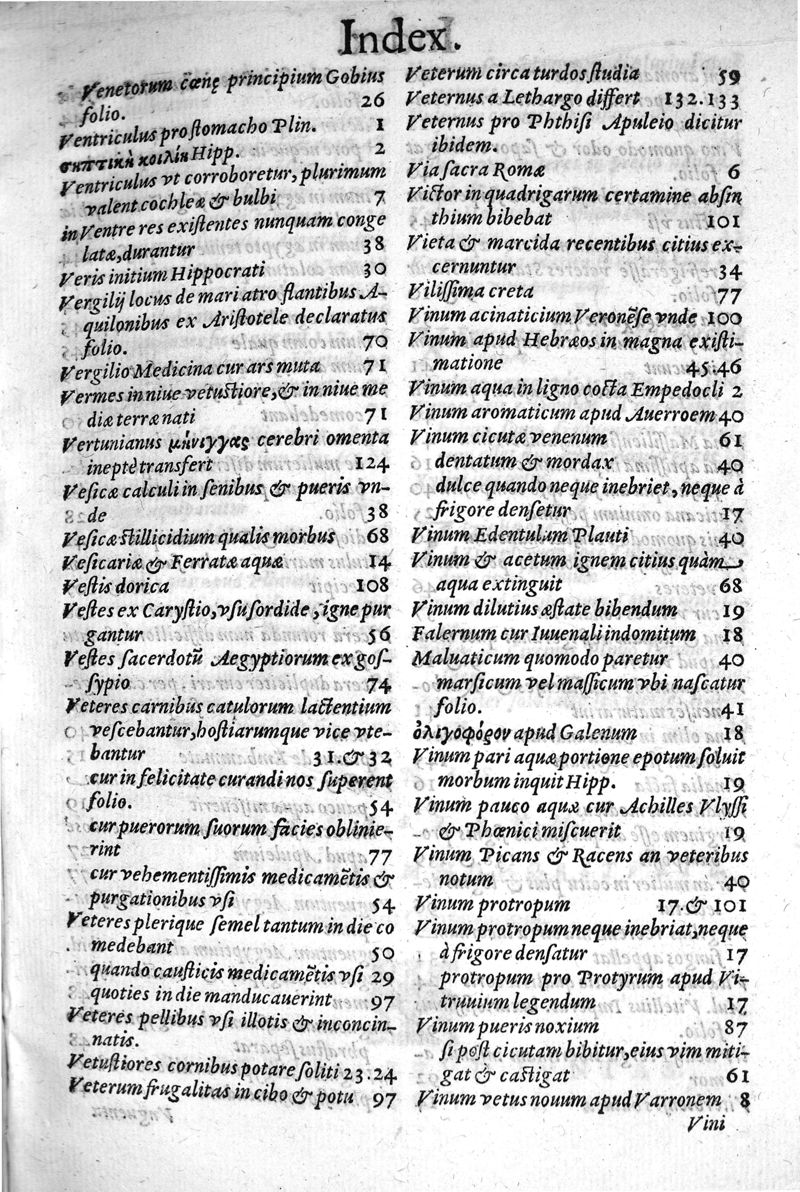 Index.
Venetorum cœnę principium Gobius
folio. 26
Ventriculus pro stomacho Plin. 1
σηπτικὴ κοιλίη Hipp. 2
Ventriculus vt corroboretur, plurimum
valent cochleæ & bulbi 7
in Ventre res existentes nunquam conge
latæ, durantur 38
Veris initium Hippocrati 30
Vergilij locus de mari atro flantibus A-
quilonibus ex Aristotele declaratus
folio. 70
Vergilio Medicina cur ars muta 71
Vermes in niue vetustiore, & in niue me
diæ terræ nati 71
Vertunianus μήνιγγας cerebri omenta
ineptè transfert 124
Vesicæ calculi in senibus & pueris vn-
de 38
Vesicæ stillicidium qualis morbus 68
Vesicariæ & Ferratæ aquæ 14
Vestis dorica 108
Vestes ex Carystio, vsu sordidę, igne pur
gantur 56
Vestes sacerdotũ Aegyptiorum ex gos-
sypio 74
Veteres carnibus catulorum lactentium
vescebantur, hostiarumque vice vte-
bantur 31. & 32
cur in felicitate curandi nos superent
folio. 54
cur puerorum suorum facies oblinie-
rint 77
cur vehementissimis medicamẽtis &
purgationibus vsi 54
Veteres plerique semel tantum in die co
medebant 50
quando causticis medicamẽtis vsi 29
quoties in die manducauerint 97
Veteres pellibus vsi illotis & inconcin-
natis.
Vetustiores cornibus potare soliti 23.24
Veterum frugalitas in cibo & potu 97
Veterum circa turdos studia 59
Veternus a Lethargo differt 132.133
Veternus pro Phthisi Apuleio dicitur
ibidem.
Via sacra Romæ 6
Victor in quadrigarum certamine absin
thium bibebat 101
Vieta & marcida recentibus citius ex-
cernuntur 34
Vilissima creta 77
Vinum acinaticium Veronẽse vnde 100
Vinum apud Hebræos in magna existi-
matione 45.46
Vinum aqua in ligno cocta Empedocli 2
Vinum aromaticum apud Auerroem 40
Vinum cicutæ venenum 61
dentatum & mordax 40
dulce quando neque inebriet, neque à
frigore densetur 17
Vinum Edentulum Plauti 40
Vinum & acetum ignem citius quàm
aqua extinguit 68
Vinum dilutius æstate bibendum 19
Falernum cur Iuuenali indomitum 18
Maluaticum quomodo paretur 40
marsicum vel massicum vbi nascatur
folio. 41
ὀλιγοφόρον apud Galenum 18
Vinum pari aquæ portione epotum soluit
morbum inquit Hipp. 19
Vinum pauco aquæ cur Achilles Vlyssi
& Phœnici miscuerit 19
Vinum Picans & Racens an veteribus
notum 40
Vinum protropum 17. & 101
Vinum protropum neque inebriat, neque
à frigore densatur 17
protropum pro Protyrum apud Vi-
truuium legendum 17
Vinum pueris noxium 87
si post cicutam bibitur, eius vim miti-
gat & castigat 61
Vinum vetus nouum apud Varronem 8
Vini